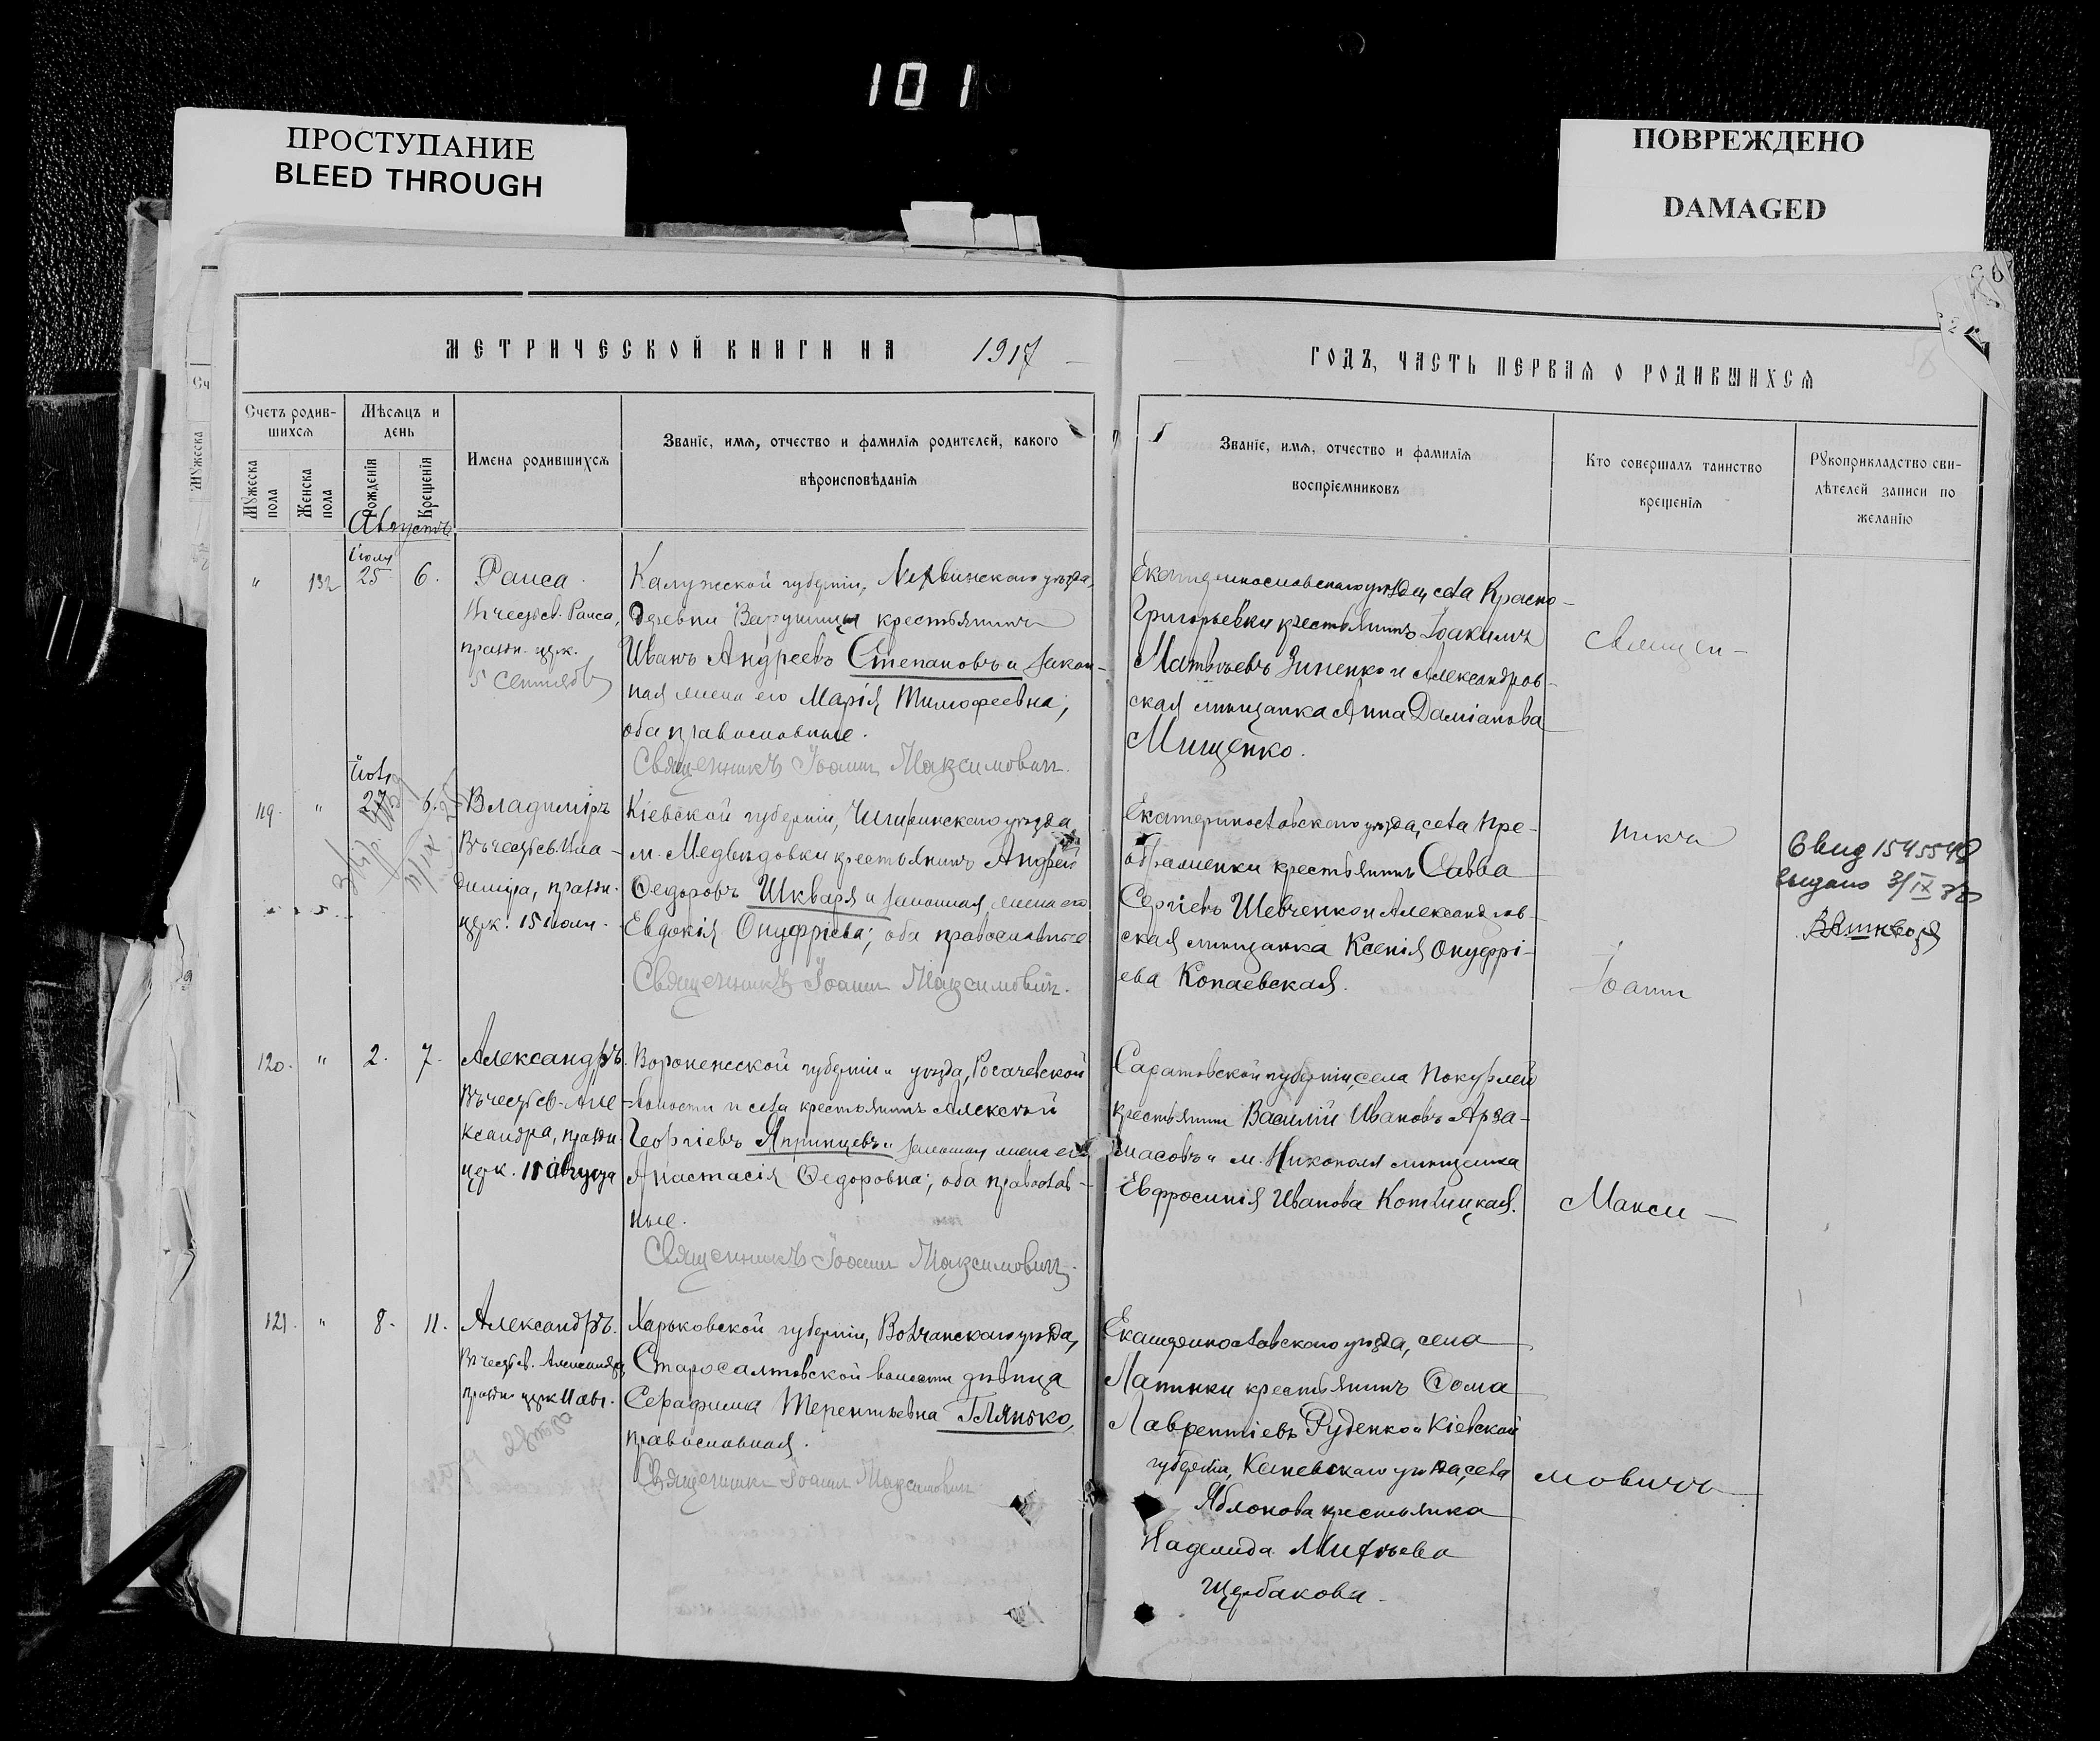 101
ПРОСТУПАНИЕ
BLEED THROUGH
ПОВРЕЖДЕНО
DAMAGED
МЕТРИЧЕСКОЙ КНИГИ НА 1917
ГОДЪ, ЧАСТЬ ПЕРВАЯ О РОДИВШИХСЯ
Счетъ родив-
шихся
Мужеска пола
Женска пола
Мѣсяцъ и
день
Рожденія
Крещенія
Имена родившихся
Званіе, имя, отчество и фамилія родителей, какого
вѣроисповѣданія
Званіе, имя, отчество и фамилія
воспріемниковъ
Кто совершалъ таинство
крещенія
Рукоприкладство сви-
дѣтелей записи по
желанію
Августъ
" 132 Іюля 25 6.
Раиса
Въ честь св. Раиса,
праздн. церк.
5 Сентября
Калужской губерніи, уѣзда,
деревни крестьянинъ
Иванъ Андреевъ Степановъ и закон-
ная жена его Марія Тимофеевна;
оба православные.
Священникъ Іоаннъ Максимовичъ.
Екатеринославскаго уѣзда, села Красно-
Григорьевки крестьянинъ Іоакимъ
Матвѣевъ Зиненко и Александров-
ская мѣщанка Анна Даміанова
Мищенко.
Священ-
119. " Іюля 27 6.
Владиміръ
Въ честь св. Вла-
диміра, праздн.
церк. 15 Іюля.
Кіевской губерніи, Чигиринскаго уѣзда
м. Медвѣдовки крестьянинъ Андрей
Ѳедоровъ Шкваря и законная жена его
Евдокія Онуфріева; оба православные
Священникъ Іоаннъ Максимовичъ.
Екатеринославскаго уѣзда, села Пре-
ображенки крестьянинъ Савва
Сергіевъ Шевченко и Александров-
ская мѣщанка Ксенія Онуфрі-
ева Копаевская.
никъ
Іоаннъ
выдано 3/IX 38
120. " 2. 7.
Александръ.
Въ честь св. Але-
ксандра, праздн.
церк. августа
Воронежской губерніи и уѣзда, Рогачевской
волости и села крестьянинъ Алексѣй
Георгіевъ Япринцевъ и законная жена его
Анастасія Ѳедоровна; оба православ-
ные.
Священникъ Іоаннъ Максимовичъ.
Саратовской губерніи, села Покурлей
крестьянинъ Василій Ивановъ Арза-
масовъ и м. Никополя мѣщанка
Евфросинія Иванова Котлицкая.
Макси-
121. " 8. 11.
Александръ.
Въ честь св. Александра,
праздн. церк. авг.
Харьковской губерніи, Волчанскаго уѣзда,
Старосалтовской волости дѣвица
Серафима Терентьевна Глянько,
православная.
Священникъ Іоаннъ Максимовичъ
Екатеринославскаго уѣзда, села
Лапинки крестьянинъ Ѳома
Лаврентіевъ Руденко и Кіевской
губерніи, Каневскаго уѣзда, села
Яблонова крестьянка
Надежда Михѣева
Щербакова.
мовичъ